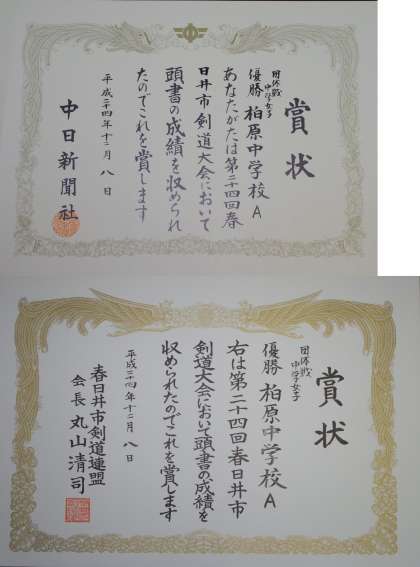 賞状
団体戦
中学女子
優勝 柏原中学校A
あなたがたは第二十四回春
日井市剣道大会において
頭書の成績を収められ
たのでこれを賞します
平成二十四年十二月八日
中日新聞社
賞状
団体戦
中学女子
優勝 柏原中学校A
右は第二十四回春日井市
剣道大会において頭書の成績を
収められたのでこれを賞します
平成二十四年十二月八日
春日井市剣道連盟
会長 丸山清司